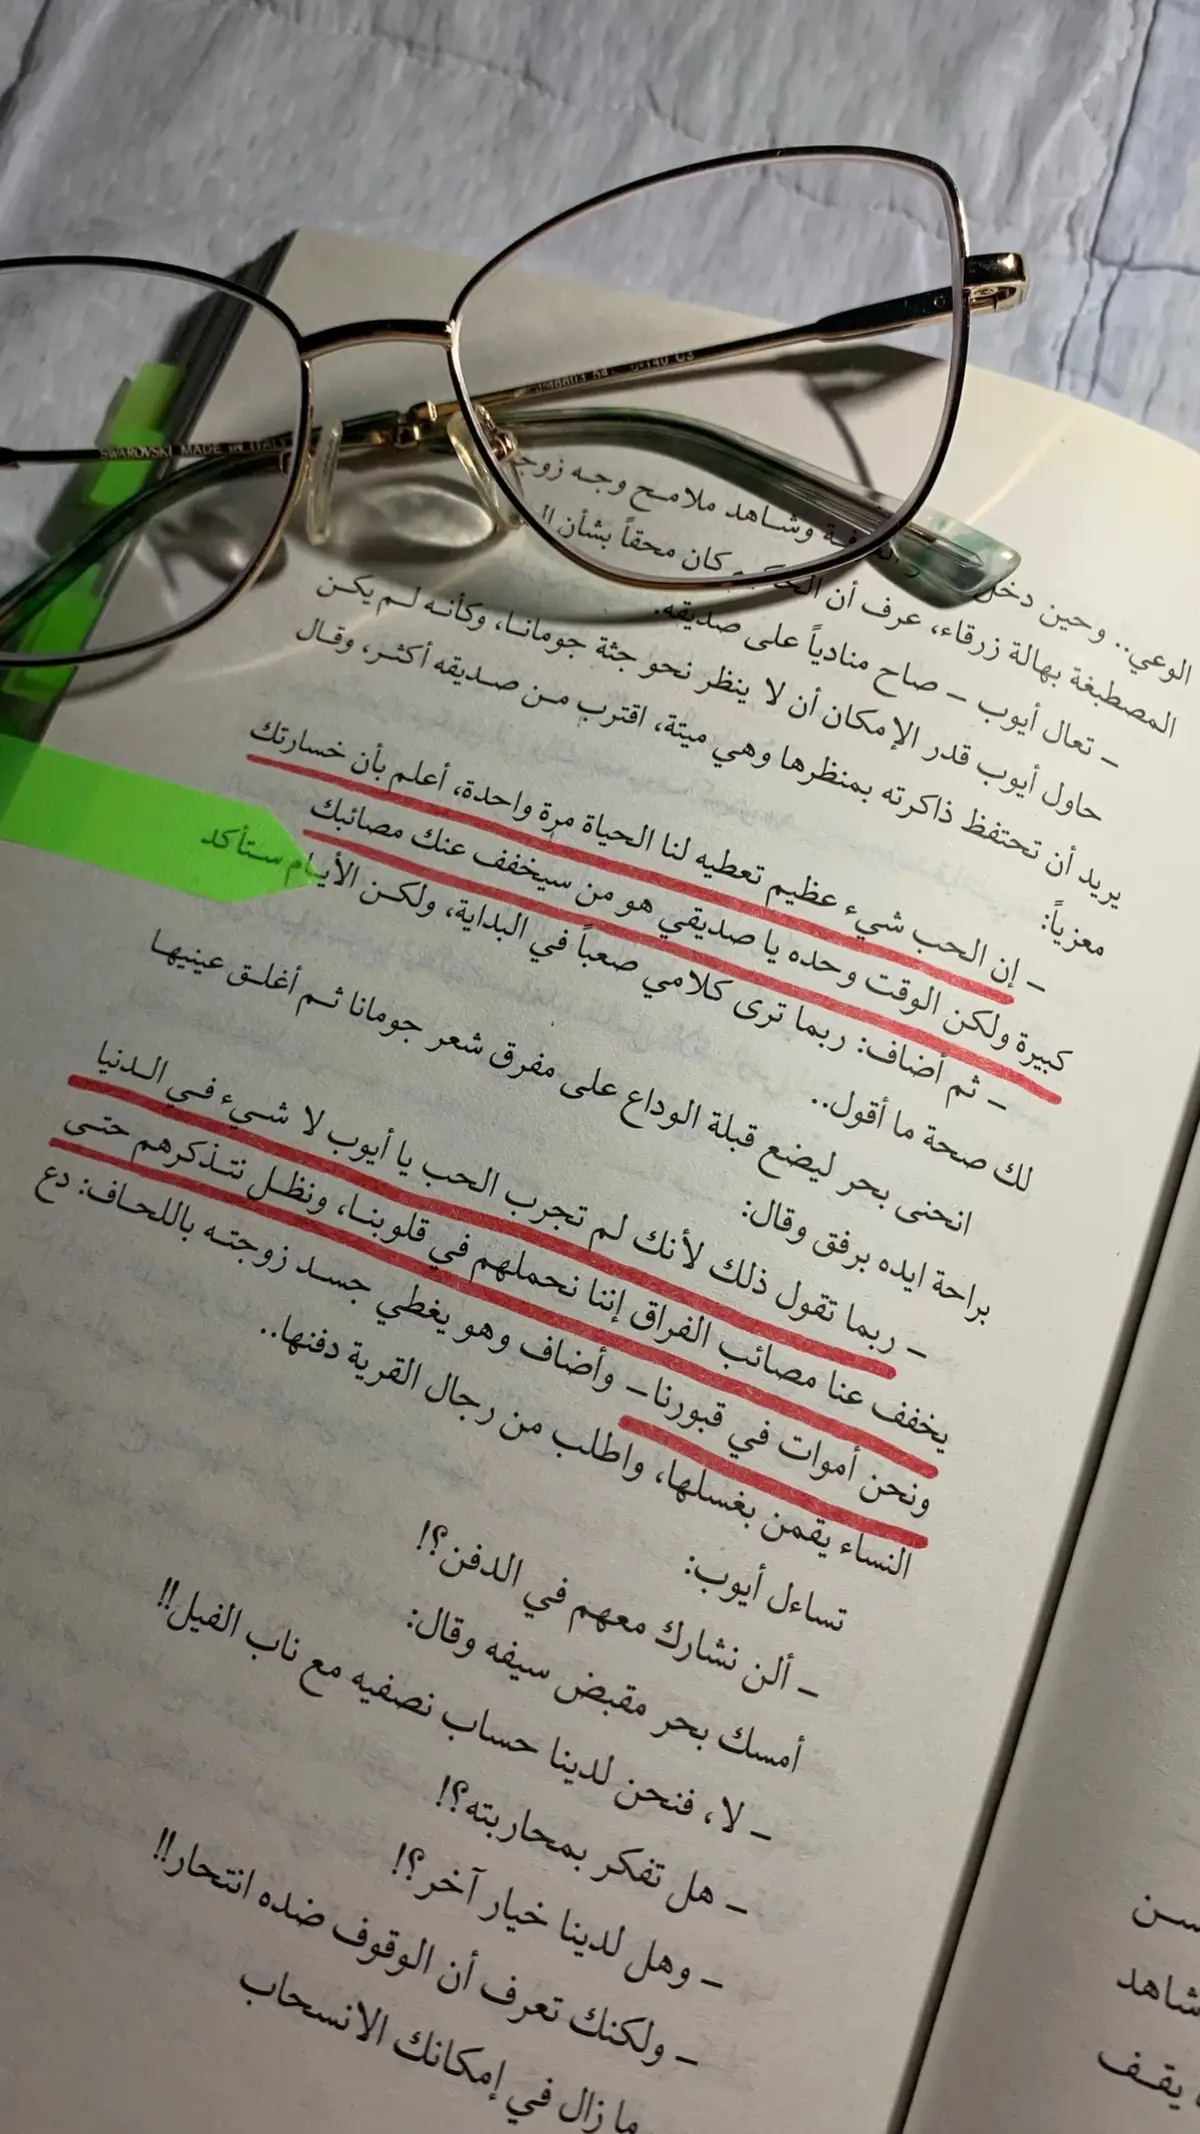 SWAROVSKI MADE IN ITALY
الوعي.. وحين دخل وشاهد ملامح وجه
المصطبغة بهالة زرقاء، عرف أن كان محقاً بشأن
– تعال أيوب – صاح منادياً على صديقه.
حاول أيوب قدر الإمكان أن لا ينظر نحو جثة جومانا، وكأنه لم يكن
يريد أن تحتفظ ذاكرته بمنظرها وهي ميتة، اقترب من صديقه أكثر، وقال
معزياً:
– إن الحب شيء عظيم تعطيه لنا الحياة مرة واحدة، أعلم بأن خسارتك
كبيرة ولكن الوقت وحده يا صديقي هو من سيخفف عنك مصائبك
– ثم أضاف: ربما ترى كلامي صعباً في البداية، ولكن الأيام ستأكد
لك صحة ما أقول..
انحنى بحر ليضع قبلة الوداع على مفرق شعر جومانا ثم أغلق عينيها
براحة ايده برفق وقال:
– ربما تقول ذلك لأنك لم تجرب الحب يا أيوب لا شيء في الدنيا
يخفف عنا مصائب الفراق إننا نحملهم في قلوبنا، ونظل نتذكرهم حتى
ونحن أموات في قبورنا – وأضاف وهو يغطي جسد زوجته باللحاف: دع
النساء يقمن بغسلها، واطلب من رجال القرية دفنها..
تساءل أيوب:
– ألن نشارك معهم في الدفن؟!
أمسك بحر مقبض سيفه وقال:
– لا، فنحن لدينا حساب نصفيه مع ناب الفيل!!
– هل تفكر بمحاربته؟!
– وهل لدينا خيار آخر؟!
– ولكنك تعرف أن الوقوف ضده انتحار!!
ما زال في إمكانك الانسحاب
يقف